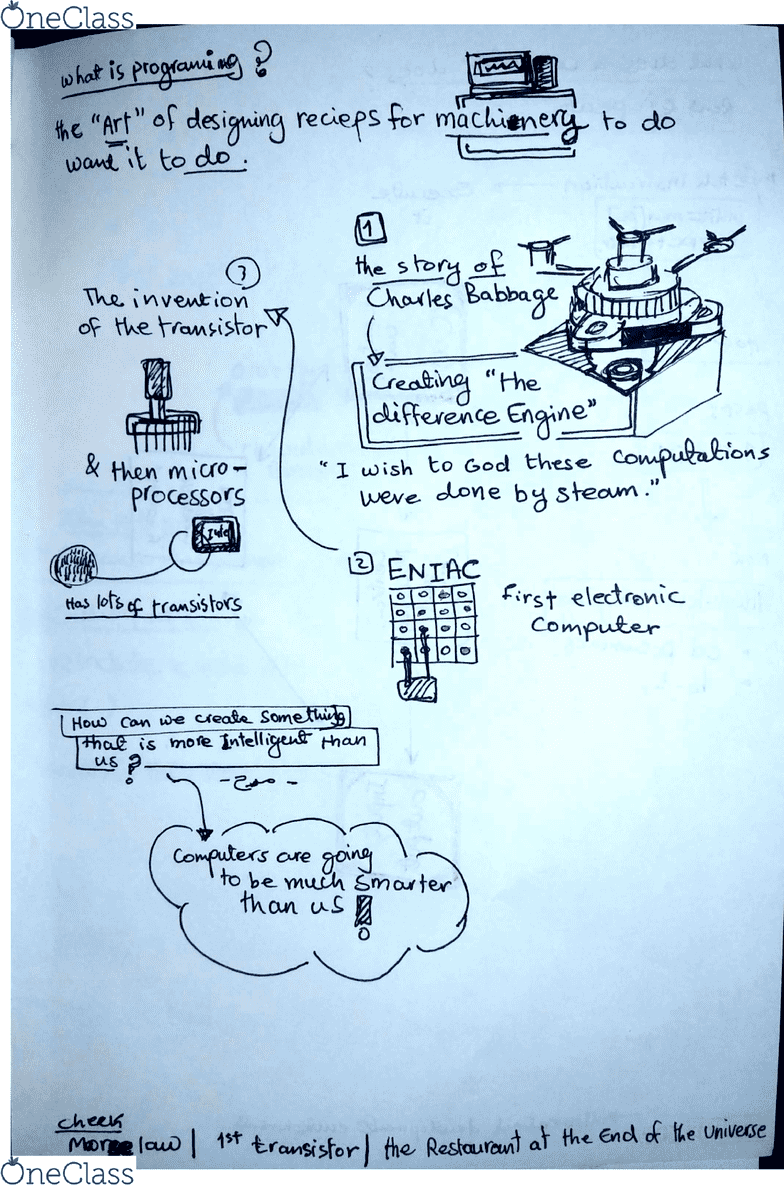 OneClass
what is programing?
the "Art" of designing recieps for machienery to do
want it to do.
1
the story of
Charles Babbage
Creating "the
difference Engine"
"I wish to God these computations
were done by steam."
2
ENIAC
first electronic
Computer
3
The invention
of the transistor
& then micro-
processors
Intel
Has lots of transistors
How can we create something
that is more Intelligent than
us?
Computers are going
to be much smarter
than us!
check
More law | 1st transistor | the Restaurant at the End of the Universe
OneClass